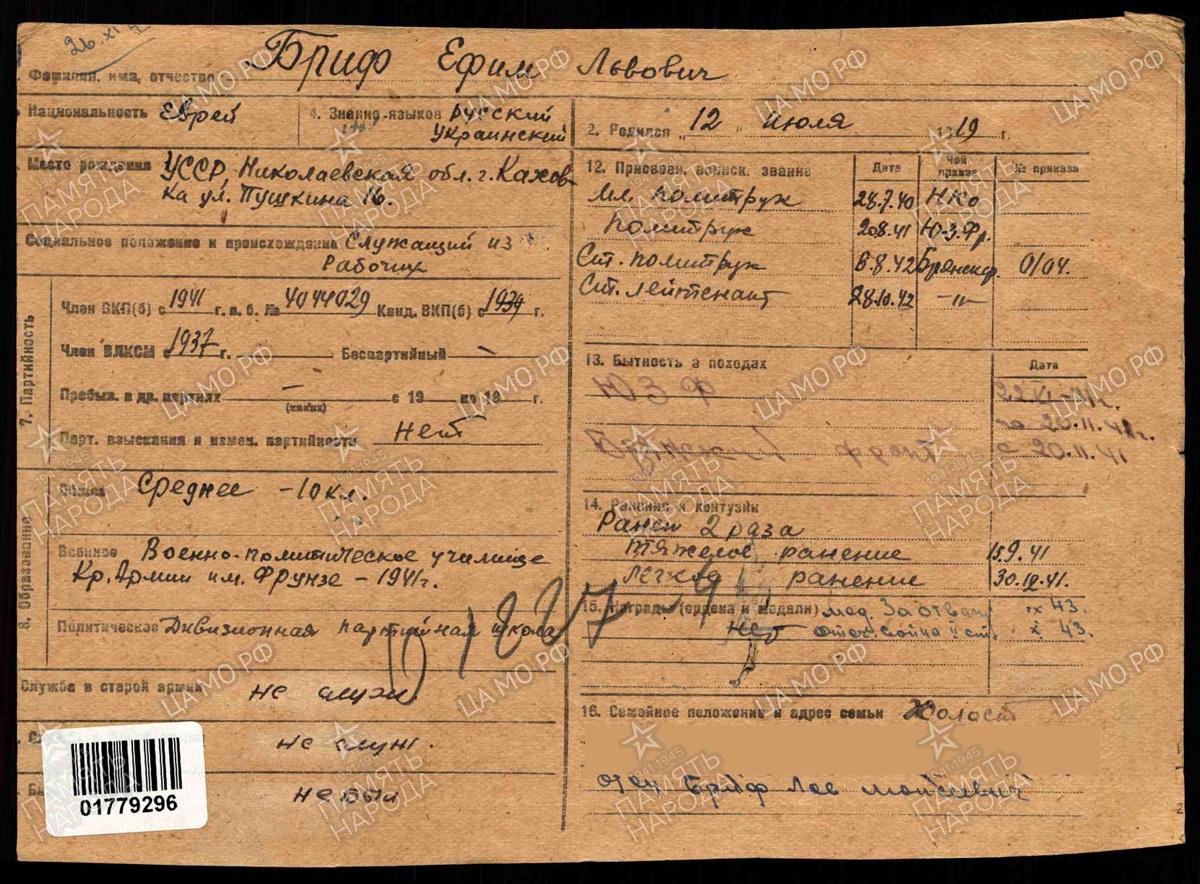 26.XI
Бриф Ефим Львович
Фамилия, имя, отчество
Национальность Еврей
4. Знание языков Русский
Украинский
2. Родился "12" июля 1919 г.
Место рождения УССР, Николаевская обл. г. Кахов-
ка ул. Пушкина 16.
Социальное положение и происхождение Служащий из
Рабочих
7. Партийность
Член ВКП(б) с 1941 г. п. б. № 4044029 Канд. ВКП(б) с 1939 г.
Член ВЛКСМ с 1937 г. Беспартийный —
Пребыв. в др. партиях — с 19 по 19 г.
(каких)
Парт. взыскания и измен. партийности Нет
8. Образование
Общее Среднее - 10 кл.
Военное Военно-политическое училище
Кр. Армии им. Фрунзе - 1941г.
Политическое Дивизионная партийная школа
Служба в старой армии не служ
не служ.
не был
01779296
12. Присвоен. воинск. звание Дата Чей приказ № приказа
Мл. политрук 28.7.40 НКО
Политрук 20.8.41 Ю-З. Фр.
Ст. политрук 6.8.42 Брянск.ф. 0104.
Ст. лейтенант 28.10.42 -"-
13. Бытность в походах Дата
ЮЗФ
по 20.11.41г.
фронт с 20.11.41
14. Ранения и контузии
Ранен 2 раза
тяжелое ранение 15.9.41
легкое ранение 30.12.41.
15. Награды (ордена и медали) мед. За отваг 43.
Нет отеч. война II ст. x 43.
16. Семейное положение и адрес семьи Холост
отец Бриф Лев Моисеевич
ПАМЯТЬ НАРОДА
1941-1945
ЦАМО.РФ